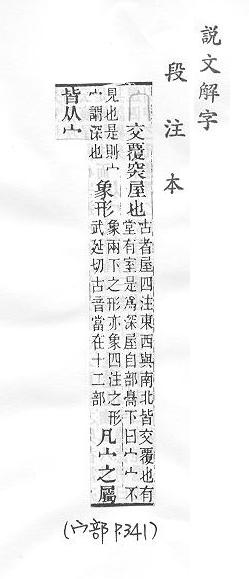 說文解字
段注本
交覆突屋也
古者屋四注東西與南北皆交覆也有
堂有室是爲深屋自部臱下曰宀宀不
見也是則宀
宀謂深也
象形
象兩下之形亦象四注之形
武延切古音當在十二部
凡宀之屬
皆从宀
(宀部 P.341)